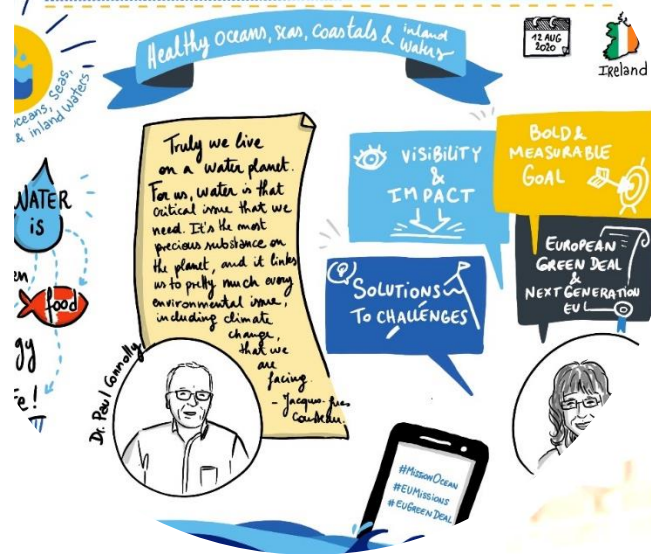 Healthy oceans, seas, coastals & inland waters
12 AUG
2020
IReland
oceans, seas,
& inland waters
WATER
is
food
Truly we live
on a water planet.
For us, water is that
critical issue that we
need. It's the most
precious substance on
the planet, and it links
us to pretty much every
environmental issue,
including climate
change,
that we
are
facing.
- Jacques-Yves
Cousteau.
Dr. Paul Connolly
VISIBILITY
&
IMPACT
BOLD &
MEASURABLE
GOAL
SOLUTIONS
TO CHALLENGES
EUROPEAN
GREEN DEAL
&
NEXT GENERATION
EU
#MISSIONOCEAN
#EUMISSIONS
#EUGREEN DEAL